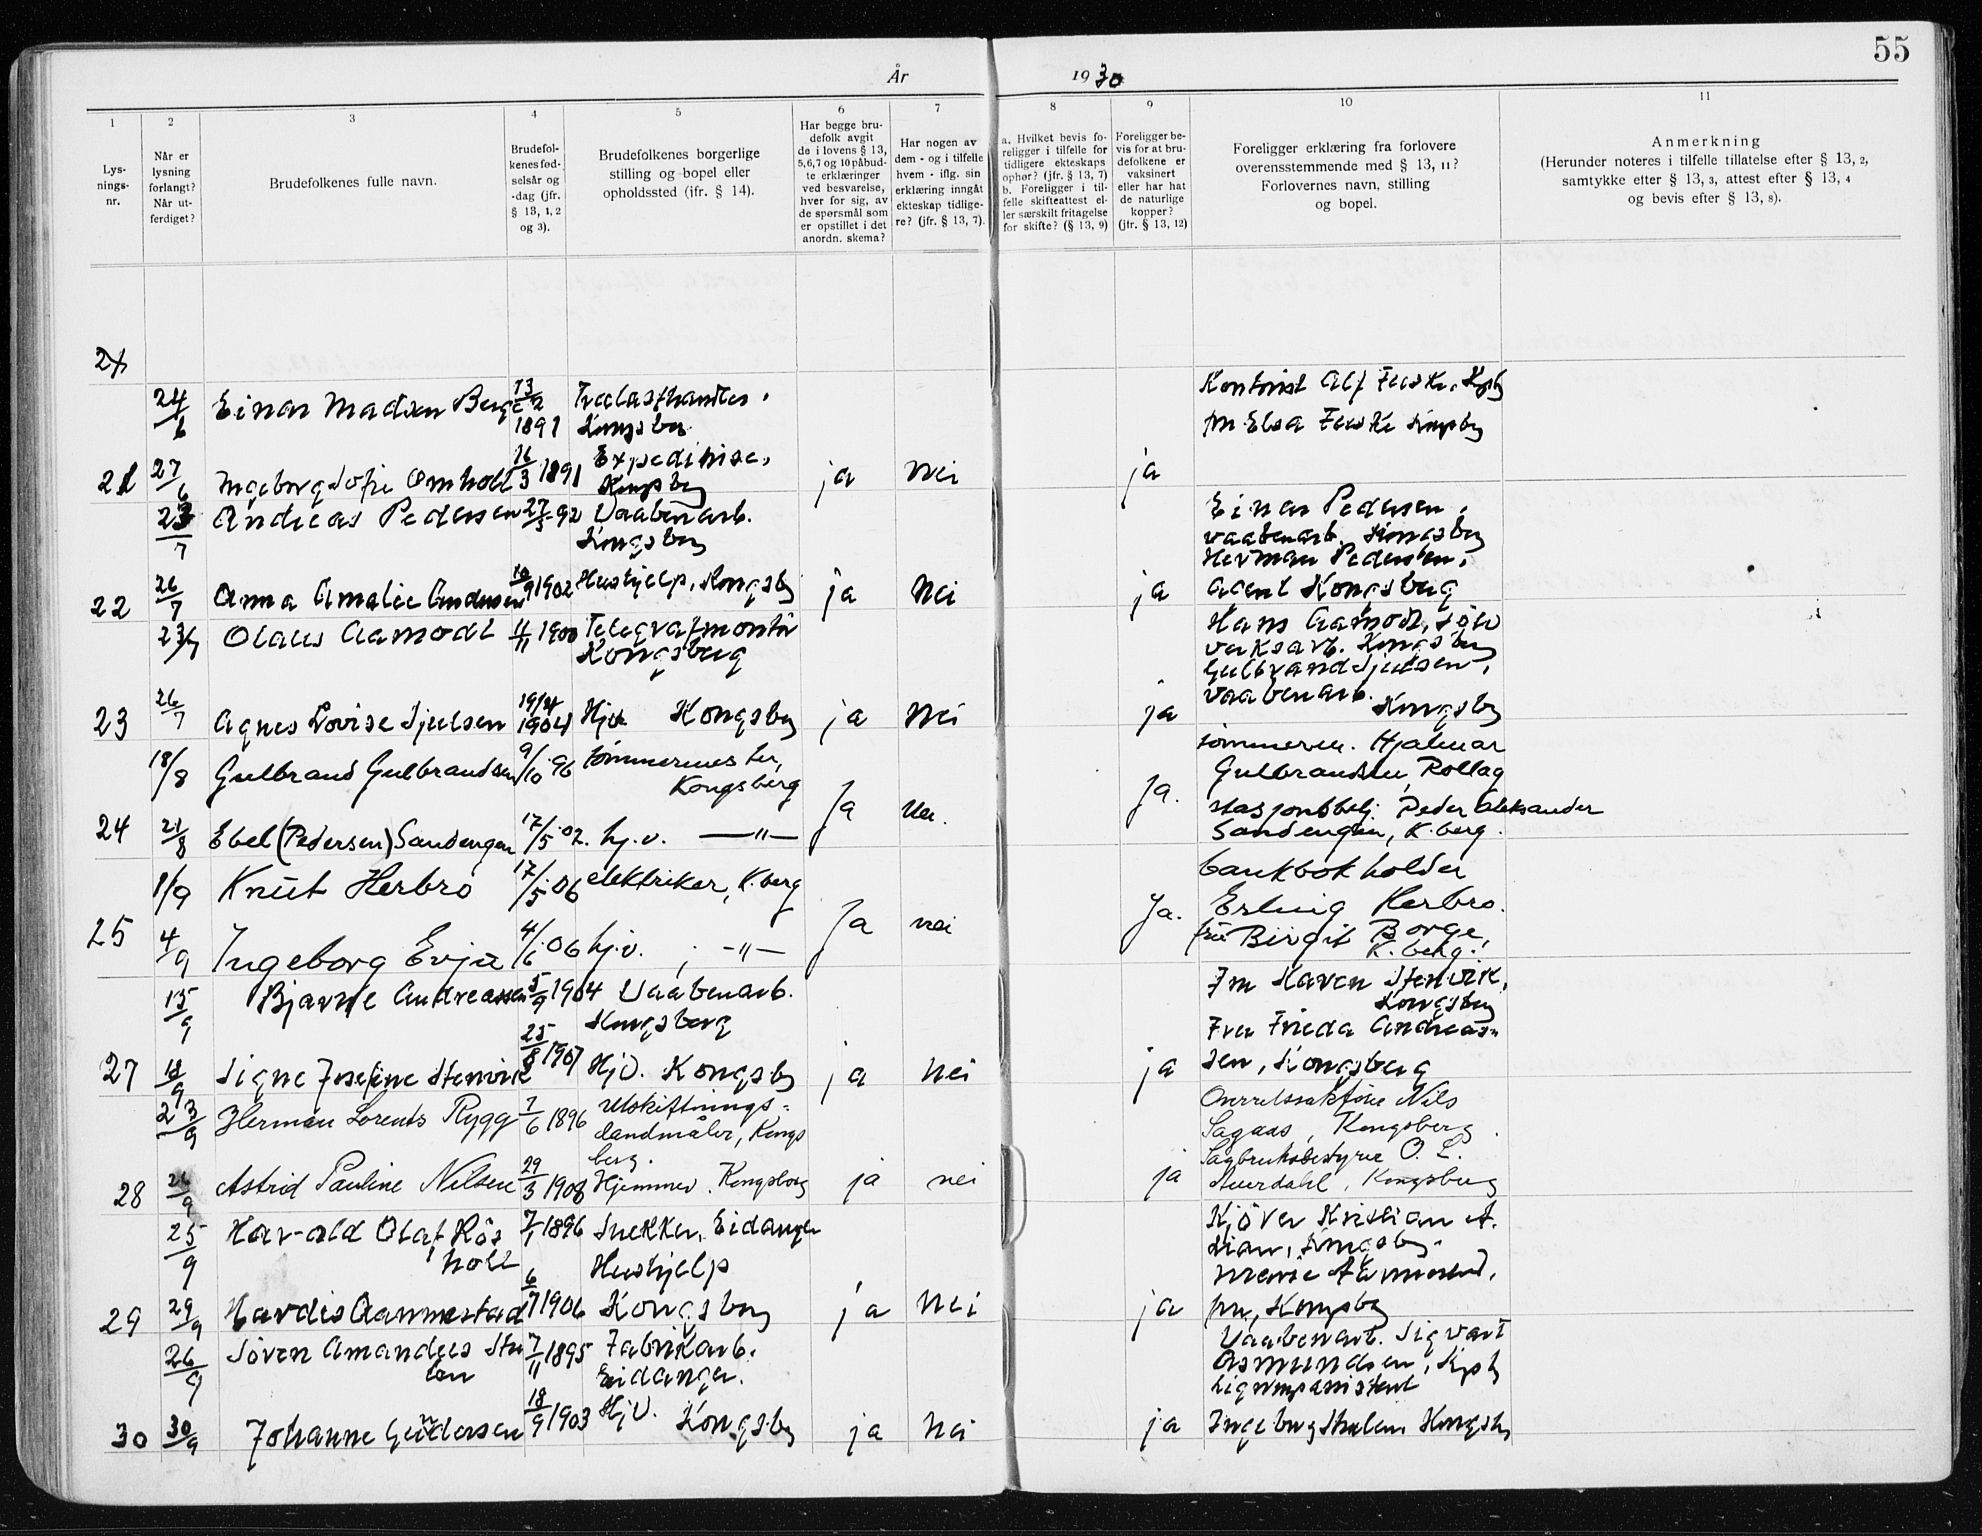 55
År 1930
1
2
3
4
5
6
7
8
9
10
11
Lys-
nings-
nr.
Når er
lysning
forlangt?
Når ut-
ferdiget?
Brudefolkenes fulle navn.
Brudefol-
kenes fød-
selsår og
-dag (jfr.
§ 13, 1, 2
og 3).
Brudefolkenes borgerlige
stilling og bopel eller
opholdssted (ifr. § 14).
Har begge bru-
defolk avgit
de i lovens § 13,
5,6,7 og 10 påbud-
te erklæringer
ved besvarelse,
hver for sig, av
de spørsmål som
er opstillet i det
anordn. skema?
Har nogen av
dem - og i tilfelle
hvem - iflg. sin
erklæring inngått
ekteskap tidlige-
re? (jfr. § 13, 7).
a. Hvilket bevis fo-
religger i tilfelle for
tidligere ekteskaps
ophør? (jfr. § 13, 7)
b. Foreligger i til-
felle skifteattest el-
ler særskilt fritagelse
for skifte? (§ 13, 9)
Foreligger be-
vis for at bru-
defolkene er
vaksinert
eller har hat
de naturlige
kopper?
(jfr. § 13, 12)
Foreligger erklæring fra forlovere
overensstemmende med § 13, 11?
Forlovernes navn, stilling
og bopel.
Anmerkning
(Herunder noteres i tilfelle tillatelse efter § 13, 2,
samtykke efter § 13, 3, attest efter § 13, 4
og bevis efter § 13, 8).
24/6 Einar Madsen Berg 1891 Kongsberg
21 27/6 Ingeborg Sofie Omholt 16/3 1891 Kongsberg ja nei ja
23/7 Andreas Pedersen 92 Vaabenarb. Einar Pedersen,
Kongsberg vaabenarb. Kongsberg
Herman Pedersen,
22 26/7 Anna Amalie Andersen 10/9 1902 Hushjelp, Kongsbg ja Nei ja agent Kongsberg
23/7 Olaus Aamodt 11/11 1900 Telegrafmontør Hans Aamodt, sølv
Kongsberg verksarb. Kongsberg
Gulbrand Sjulsen,
vaabenarb.
23 26/7 Agnes Lovise Sjulsen 19/4 1904 Hjv. Kongsbg ja Nei ja Kongsbg
18/8 Gulbrand Gulbrandsen 9/10 96 tømmermester, tømmerm. Hjalmar
Kongsberg Gulbrandsen, Rollag
24 21/8 Ebel (Pedersen) Sandengen 17/5 02. hj.v. —"— Ja Nei. Ja. stasjonsbetj. Peder Aleksander
Sandengen, K.berg.
1/9 Knut Herbro 17/5 06 elektriker, K.berg bankbokholder
Erling Herbro.
25 4/9 Ingeborg Evju 4/6 06 hj.v. , —"— Ja nei Ja. fru Birgit Borge,
K.berg.
15/9 Bjarne Andreassen 5/9 1904 Vaabenarb. Fru Karen Stenvik,
Kongsberg Kongsberg
Fru Frieda Andreas-
27 18/9 Signe Josefine Stenvik 25/8 1907 Hjv. Kongsbg ja Nei ja sen, Kongsberg
23/9 Herman Lorents Rygg 7/6 1896 Utskiftnings-
landmåler, Kongs
berg. Overretssakfører Nils
Sagaas, Kongsberg.
Sagbruksbestyrer O. L.
28 26/9 Astrid Pauline Nilsen 29/3 1908 Hjemmev. Kongsberg ja nei ja Kongsberg
25/9 Harald Olaf Røs 7/1 1896 Snekker, Eidanger Kjører Kristian A.
holt Lian, Kongsbg.
Hushjelp
29 29/9 1906 Kongsberg ja Nei ja fru, Kongsbg
26/9 Søren Amandus 7/11 1895 Fabrikarb. Vaabenarb. Sigvart
Eidanger. Asmundsen, Kgsbg
30 30/9 Johanne Gundersen 18/9 1903 Hjv. Kongsbg ja Nei ja Ingeborg Kongsbg